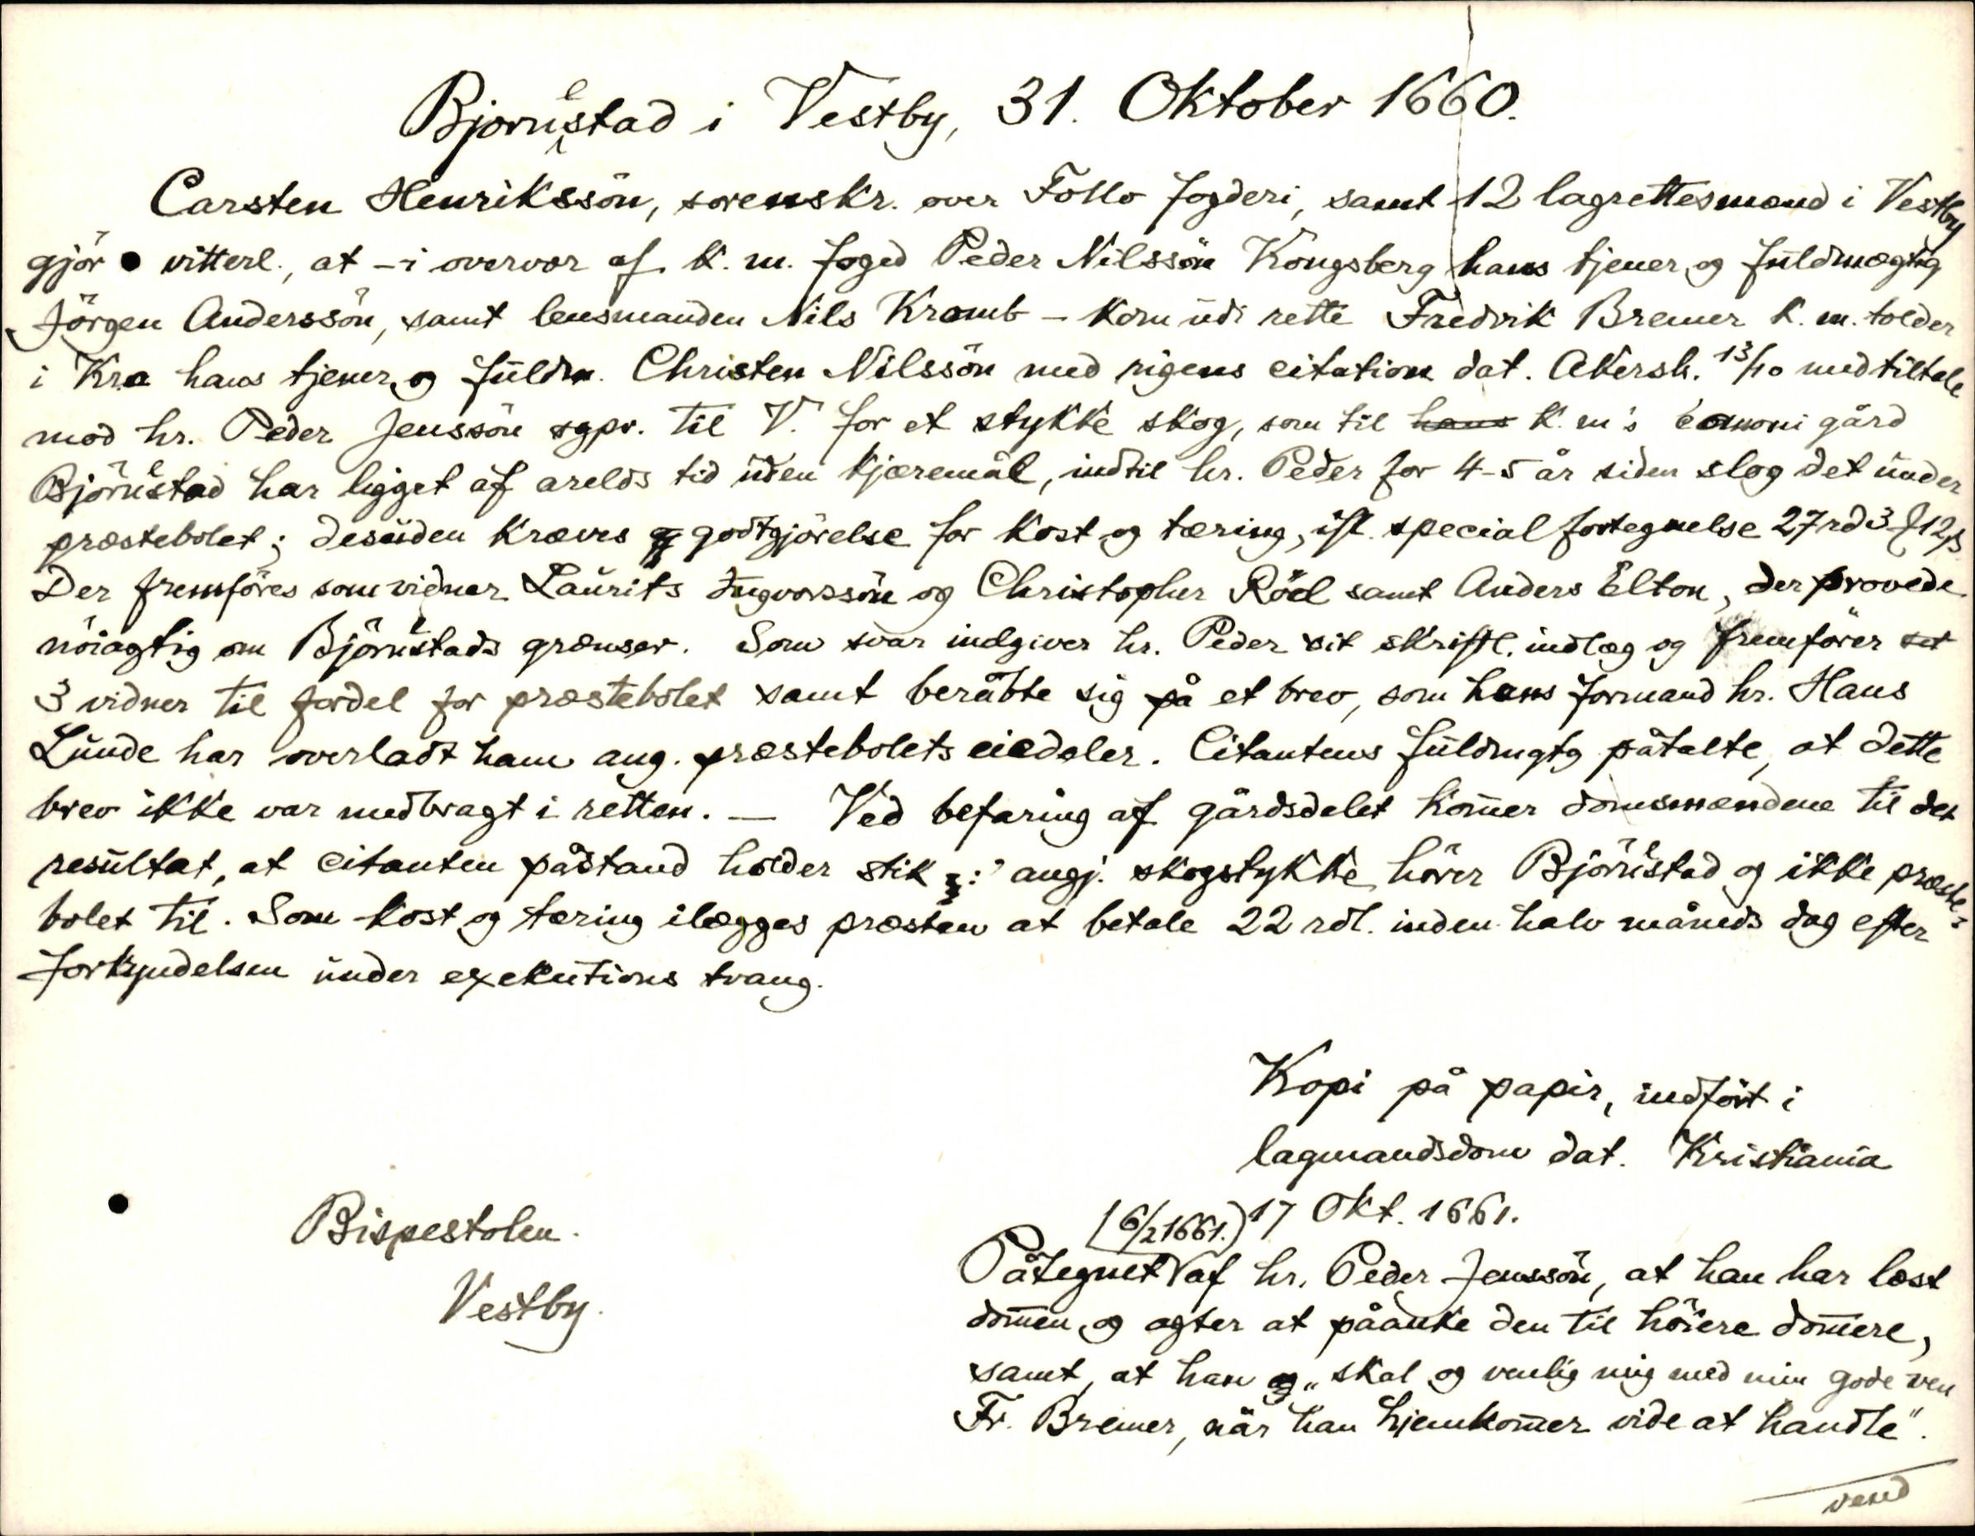 Bjornüestad i Vestby, 31. Oktober 1660.
Carsten Henrikssön, sorenskr. over Follo fogderi, samt 12 lagrettesmænd i Vestby
gjör vitterl., at - i overvær af k. m. foged Peder Nilssön Kongsberg hans tjener og fuldmægtig
Jörgen Anderssön, samt lensmanden Nils Kramb - kom udi rette Fredrik Bremer k. m. tolder
i Kra hans tjener og fuldm. Christen Nilssön med rigens citation dat. Akersh. 13/10 med tiltale
mod hr. Peder Jenssön sgpr. til V. for et stykke skog, som til hans k. m's canoni gård
Björnüestad har ligget af arelds tid uden kjæremål, indtil hr. Peder for 4-5 år siden slog det under
præstebolet; desuden kræves godtgjörelse for kost og tæring, ifl. special fortegnelse 27 rd 3 f 12 β
Der fremföres som vidner Laurits Ingvorssön og Christopher Röel samt Anders Elton, der provede
nöiagtig om Björnüestads grænser. Som svar indgiver hr. Peder sit skriftl. indlæg og fremförer
3 vidner til fordel for præstebolet samt beråbte sig på et brev, som hans formand hr. Hans
Lunde har overladt ham ang. præstebolets eiedeler. Citantens fuldmgtg påtalte, at dette
brev ikke var medbragt i retten. — Ved befaring af gårdsdelet kom̄er domsmændene til det
resultat, at citanten påstand holder stik : angj. skogstykke hörer Björnüestad og ikke præste-
bolet til. Som kost og tæring ilægges præsten at betale 22 rdl. inden halv måneds dag efter
forkyndelsen under exekutions tvang.
Kopi på papir, indfört i
lagmandsdom dat. Kristiania
17 Okt. 1661.
Bispestolen.
Vestby.
(6/2 1661.)
Påtegnet af hr. Peder Jenssön, at han har læst
dom̄en og agter at påanke den til höiere dom̄ere,
samt, at han „skal og venlig mig med min gode ven
Fr. Bremer, når han hjemkom̄er vide at handle".
vend